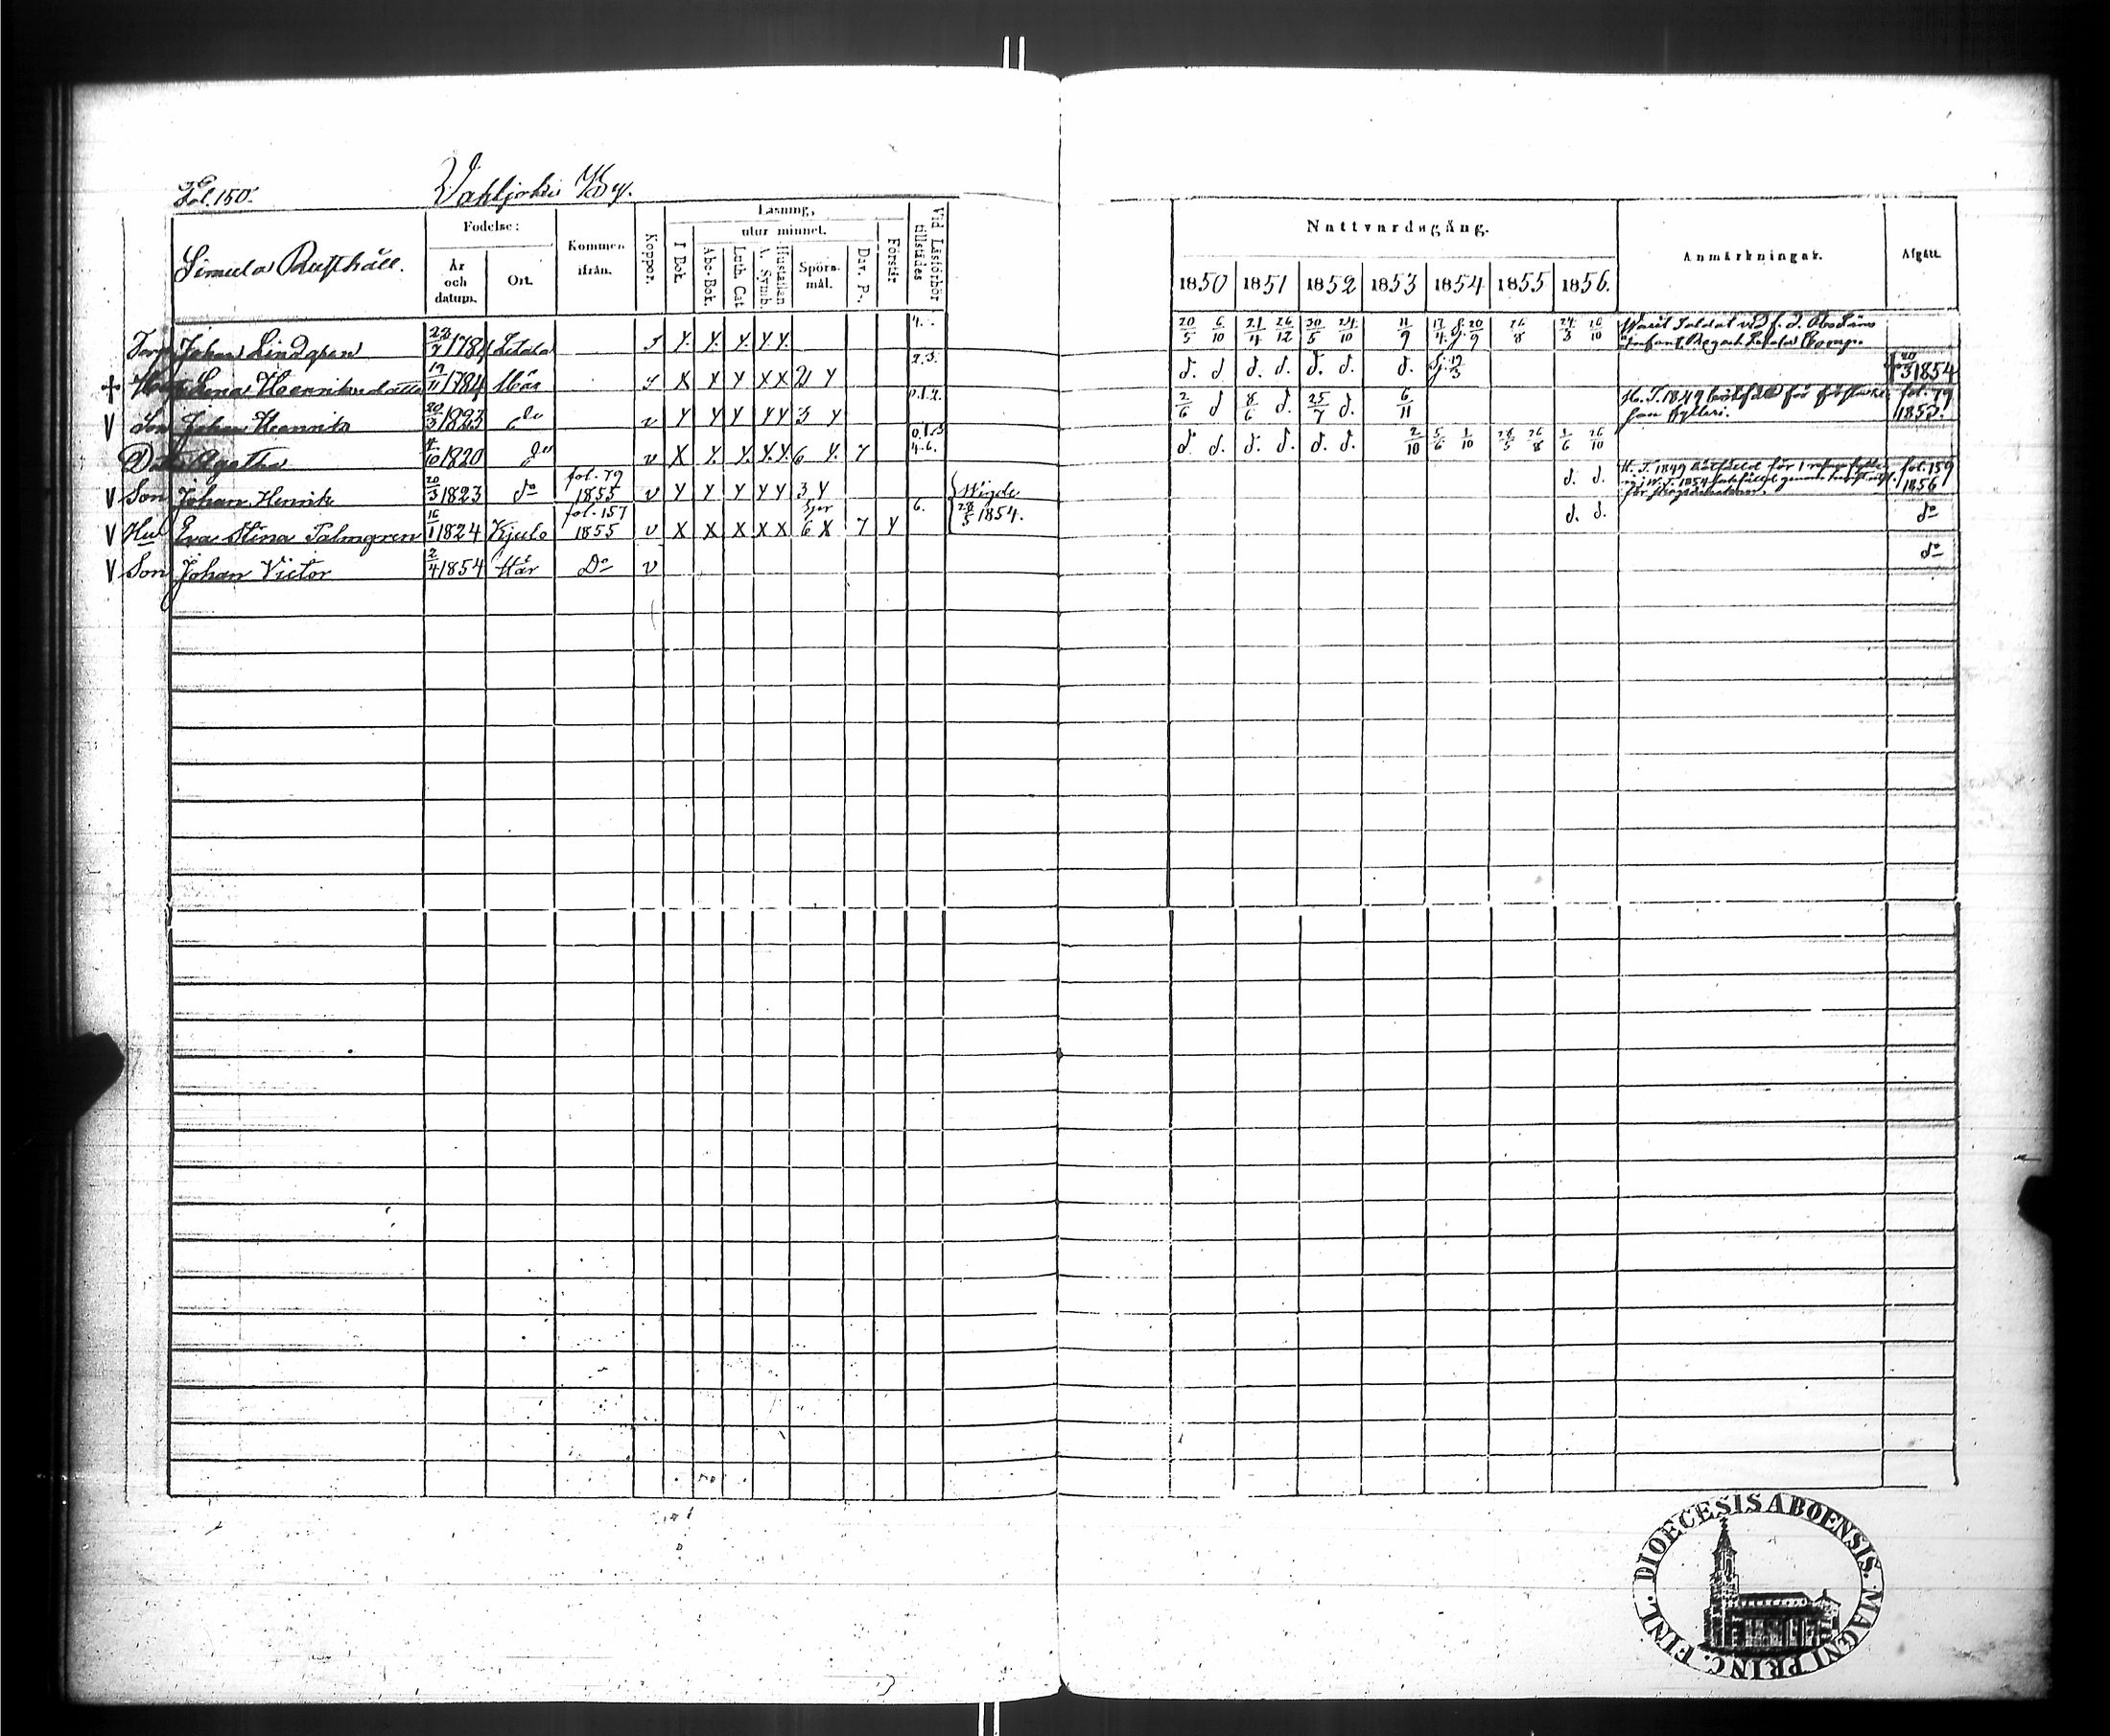 Fol. 150.
Vahljoki By.
Simula Rusthåll.
Födelse:
År och datum.
Ort.
Kommen ifrån.
Koppor.
Läsning,
I Bok.
utur minnet.
Abc-Bok.
Luth. Cat.
A. Symb.
Hustaflan
Spörsmål.
Dav. Ps.
Förstår
Vid Läsförhör tillstädes
Nattvardsgång.
1850 1851 1852 1853 1854 1855 1856.
Anmärkningar.
Afgått.
Torp Johan Lindgren 1784 Letala y. y. y. y. y. 4. 20/5 6/10 21/4 26/12 30/5 24/10 11/9 26/8 24/3 26/10 Varit Soldat vid f. d.
+ Lena Henriksdotter 19/11 1784 x y y x x y 2.3. d. d d. d. d. d. d. 1854
V Son Johan Henrik 20/3 1823 do v y y y y y 3 y 2/6 d 8/6 d. 25/7 d. 6/11 1849 för fol. 79
fylleri. 1853.
Agatha 4/10 1820 do v x y. y. y. y. 6 y. 7 4.6. d. d. d. d. d. d. 2/10 5/6 1/10 28/5 26/8 1/6 26/10
V Son Johan Henrik 20/3 1823 do fol. 79 1855 v y y y y y 3 y Vigde d. d. 1849 för fol. 159 1856
V Hu Eva Stina Palmgren 16/1 1824 Kjulo fol. 157 1855 v x x x x x 6 x 7 y 6. 28/5 1854. d. d. do
V Son Johan Victor 2/4 1854 Här Do v do
DIOECESIS ABOENSIS. MAGNI PRINC. FINL.